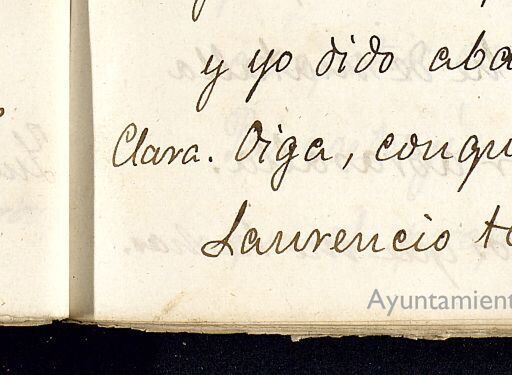 y yo dido aba
Clara. Oiga, conqu
Laurencio te
Ayuntamient